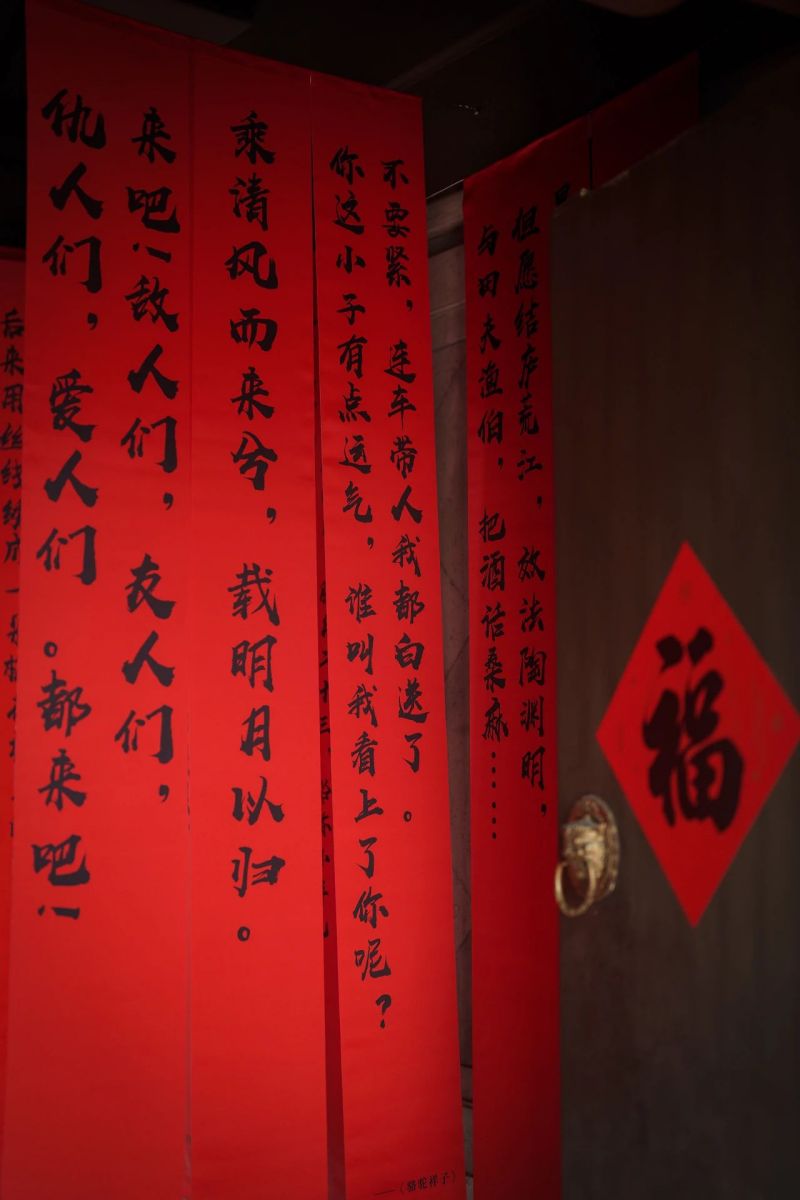 福
但愿结庐荒江，效法陶渊明，
与田夫渔伯，把酒话桑麻……
不要紧，连车带人我都白送了。
你这小子有点运气，谁叫我看上了你呢？
——《駱駝祥子》
乘清风而来兮，载明月以归。
来吧！敌人们，友人们，
仇人们，爱人们。都来吧！
后来用丝线